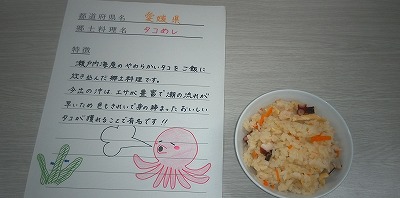 都道府県名 愛媛県
郷土料理名 タコめし
特徴
瀬戸内海産のやわらかいタコをご飯に
炊き込んだ郷土料理です。
今出の沖は エサが豊富で潮の流れが
早いため 色もきれいで身の締まったおいしい
タコが獲れることで有名です!!